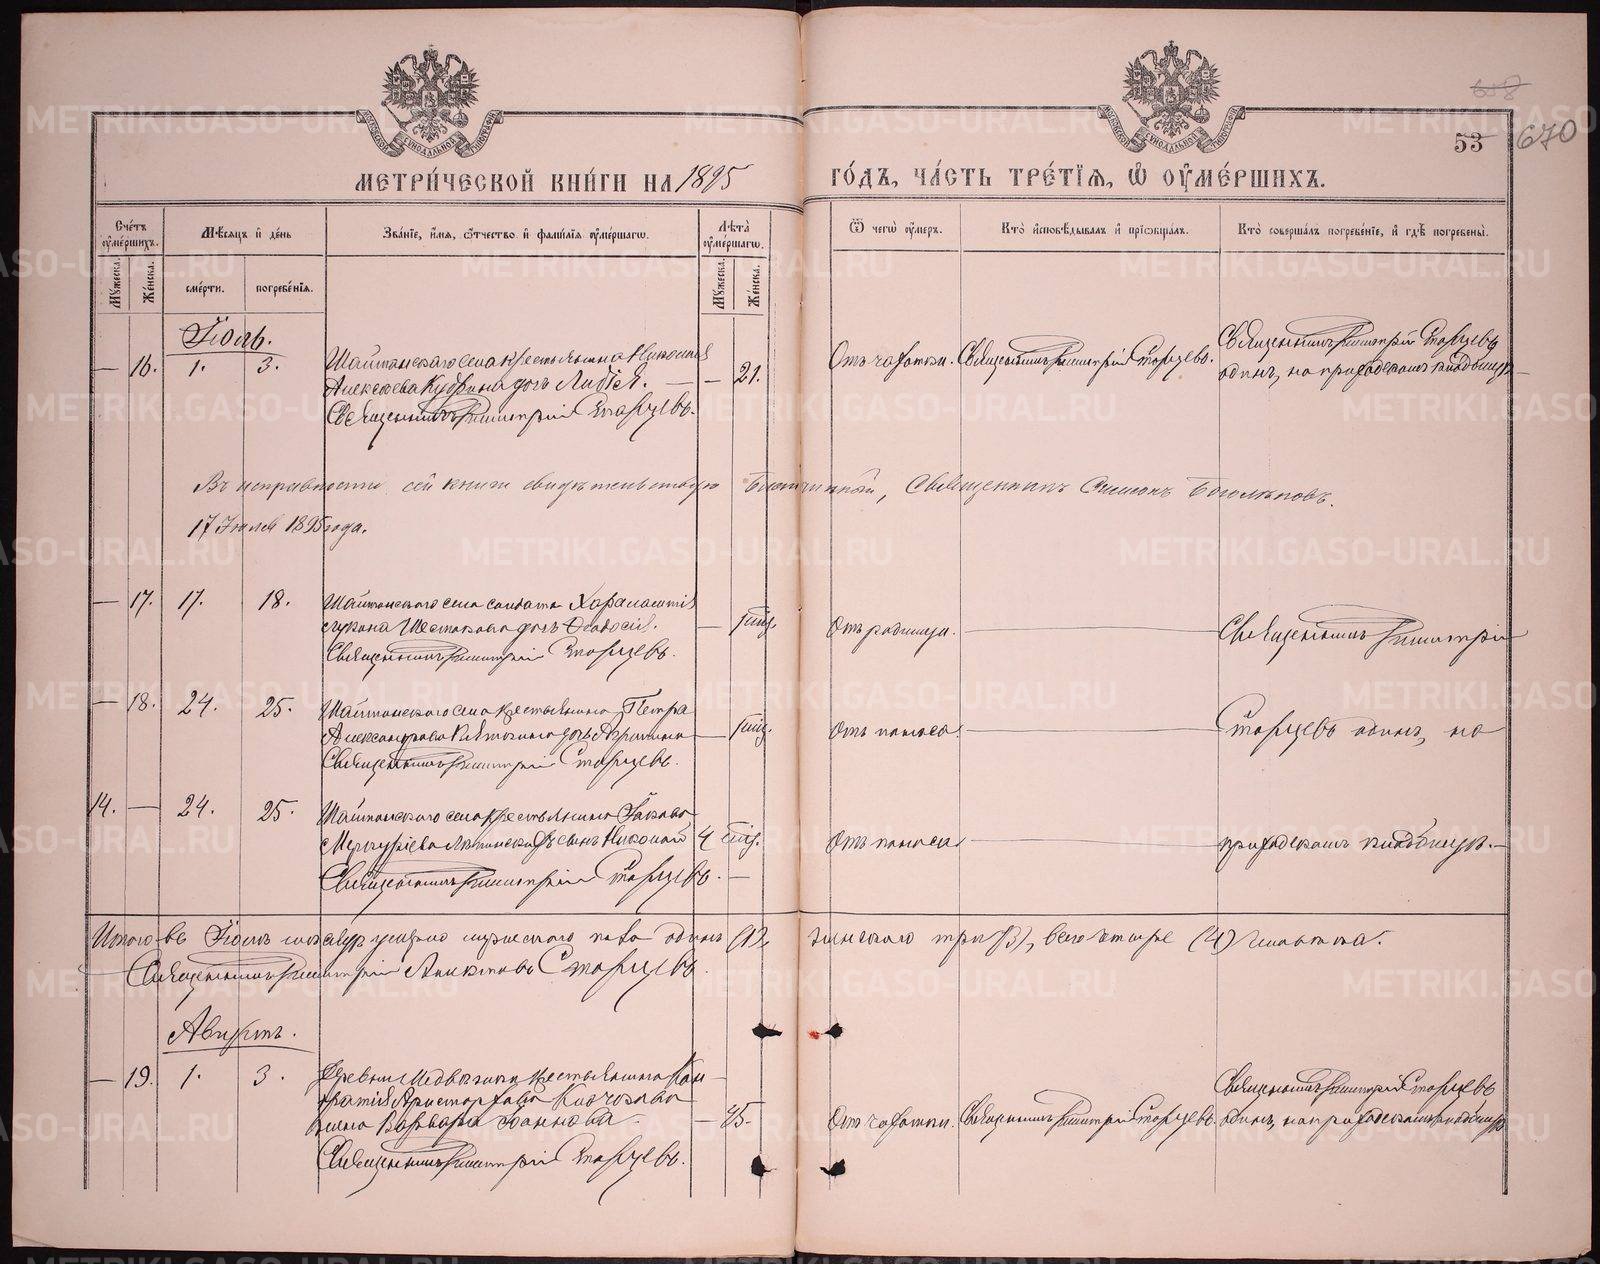 658
53 670
МЕТРИ́ЧЕСКОЙ КНИ́ГИ НА 1895 ГО́ДЪ, ЧА́СТЬ ТРЕ́ТІѦ, Ѡ҆ ОУ҆МЕ́РШИХЪ.
Сче́тъ оу҆ме́ршихъ.
Му́жеска.
Же́нска.
Мѣ́сяцъ и҆ де́нь
сме́рти.
погребе́нїѧ.
Зва́нїе, и҆́мѧ, ѻ҆́тчество и҆ фами́лїѧ оу҆ме́ршагѡ.
Лѣ́та оу҆ме́ршагѡ.
Му́жеска.
Же́нска.
Ѿ чегѡ̀ оу҆́меръ.
Кто̀ и҆сповѣ́дывалъ и҆ прїѡбща́лъ.
Кто̀ соверша́лъ погребе́нїе, и҆ гдѣ̀ погребены̀.
Іюль.
— 16. 1. 3. Шайтанскаго села крестьянина Николая
Алексѣева Кубина дочь Лидія. — — 21.
Священникъ Димитрій Старцевъ.
Отъ чахотки. Священникъ Димитрій Старцевъ.
Священникъ Димитрій Старцевъ
одинъ, на приходскомъ кладбищѣ
Въ исправности сей книги свидѣтельствую Благочинный, Священникъ Симонъ Боголѣповъ.
17 Іюля 1895 года.
— 17. 17. 18. Шайтанскаго села солдата Харалампія
Шестакова дочь Ѳеодосія. —
Священникъ Димитрій Старцевъ.
Отъ родимца. — Священникъ Димитрій
— 18. 24. 25. Шайтанскаго села крестьянина Петра
Александрова дочь Агриппина —
Священникъ Димитрій Старцевъ.
Отъ поноса. — Старцевъ одинъ, на
14. — 24. 25. Шайтанскаго села крестьянина Іакова
Меркуріева сынъ Николай 4 мѣс.
Священникъ Димитрій Старцевъ. —
Отъ поноса — приходскомъ кладбищѣ. —
Итого въ Іюлѣ мѣсяцѣ умерло мужескаго пола одинъ (1), женскаго три (3), всего четыре (4) человѣка.
Священникъ Димитрій Старцевъ.
Августъ.
— 19. 1. 3. Деревни крестьянина Кон-
дратія Аристархова
жена Варвара Іоаннова — — 45.
Священникъ Димитрій Старцевъ.
Отъ чахотки. Священникъ Димитрій Старцевъ.
Священникъ Димитрій Старцевъ
одинъ, на приходскомъ кладбищѣ
METRIKI.GASO-URAL.RU